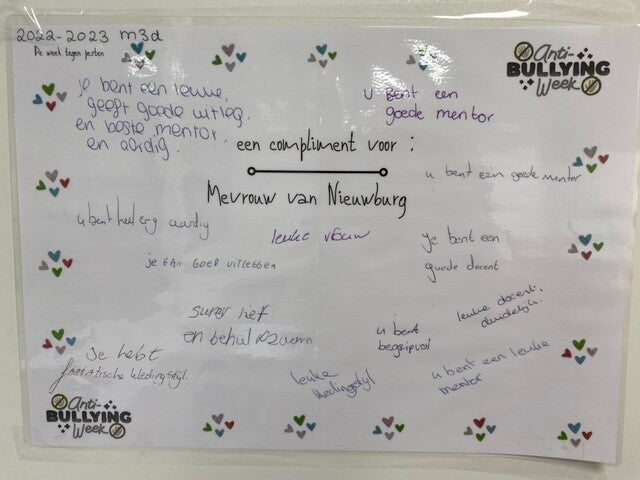 2022-2023 m3d
De week tegen pesten
Anti-
BULLYING
Week
je bent een leuke,
geeft goede uitleg.
en boste mentor.
en aardig.
u bent een
goede mentor
een compliment voor :
u bent een goede mentor
Mevrouw van Nieuwburg
u bent heel erg aardig
leuke vrouw
Je bent een
goede docent
je kan goed uitleggen
super lief
en behulpzaam
u bent
begripvol
leuke docent,
duidelijk.
Je hebt
fantatische kledingstyl.
leuke
kledingstyl
u bent een leuke
mentor
Anti-
BULLYING
Week